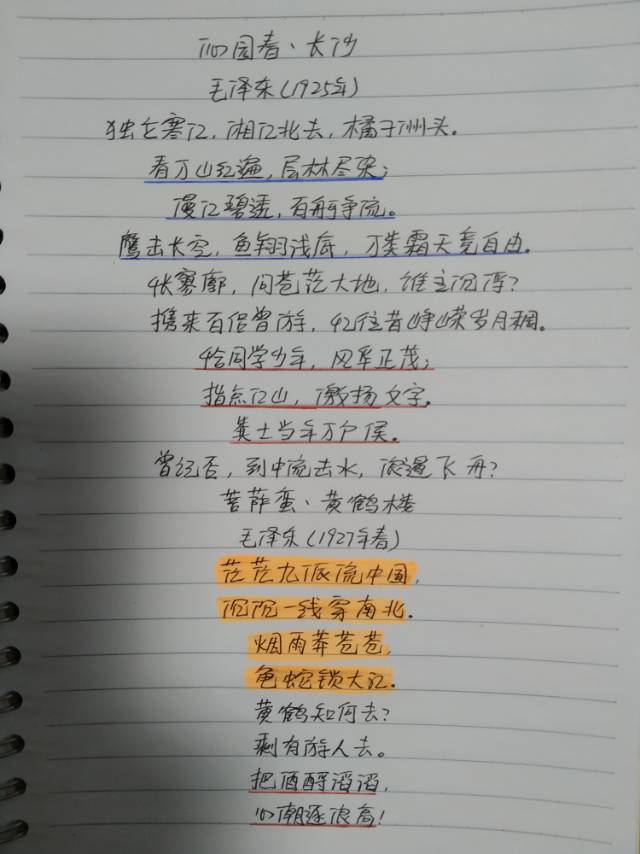 沁园春·长沙
毛泽东(1925年)
独立寒江,湘江北去,橘子洲头。
看万山红遍,层林尽染;
漫江碧透,百舸争流。
鹰击长空,鱼翔浅底,万类霜天竞自由。
怅寥廓,问苍茫大地,谁主沉浮?
携来百侣曾游,忆往昔峥嵘岁月稠。
恰同学少年,风华正茂;
指点江山,激扬文字。
粪土当年万户侯。
曾记否,到中流击水,浪遏飞舟?
菩萨蛮·黄鹤楼
毛泽东(1927年春)
茫茫九派流中国,
沉沉一线穿南北.
烟雨莽苍苍,
龟蛇锁大江.
黄鹤知何去?
剩有游人去。
把酒酹滔滔,
心潮逐浪高!